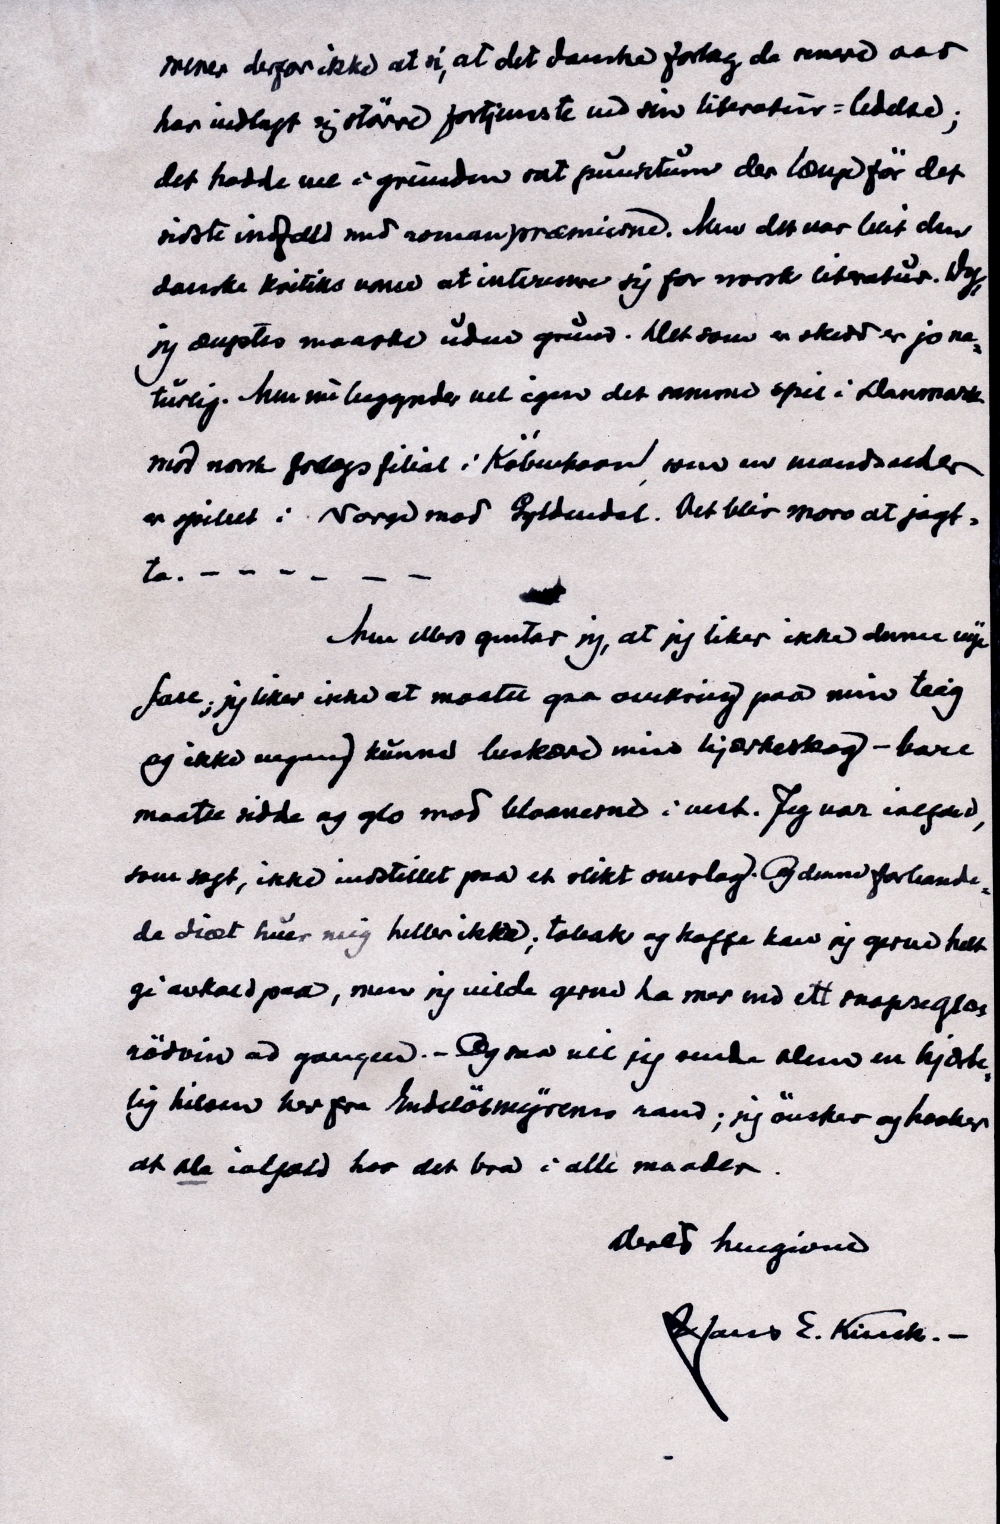 mener derfor ikke at si, at det danske forlag de senere aar
har indlagt sig större fortjenste ved sin literatur-ledelse;
det hadde vel i grunden sat punktum der længe för det
sidste indfald med romanpræmierne. Men det var blit den
danske kritiks vane at interessere sig for norsk literatur. Og,
jeg ængstes maaske uden grund. Det som er skedd er jo na-
turlig. Men nu begynder vel igen det samme spil i Danmark
mod norsk forlagsfilial i Köbenhavn, som en mandsalder
er spillet i Norge mod Gyldendal. Det blir moro at jagt-
ta. — — — — — —
Men ellers gentar jeg, at jeg liker ikke denne nye
fase; jeg liker ikke at maatte gaa omkring paa min teig
og ikke engang kunne beskære min bjærkeskog – bare
maatte sidde og glo mod blaanerne i vest. Jeg var ialfald,
som sagt, ikke indstillet paa et slikt overslag. Og denne forbande-
de diæt huer mig heller ikke; tobak og kaffe kan jeg gerne helt
gi avkald paa, men jeg vilde gerne ha mer end ett snapseglas
rödvin ad gangen. – Og saa vil jeg sende Dem en hjærte-
lig hilsen her fra Endelösmyrens rand; jeg önsker og haaber
at De ialfald har det bra i alle maader.
Deres hengivne
Hans E. Kinck. –